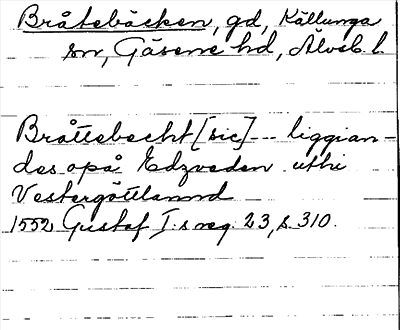 Bråtebäcken, gd, Källunga
sn, Gäsene hd, Älvsb. l.
Bråttebecht [sic] --- liggian-
des opå Edzveden uthi
Vestergöttlannd
1552 Gustaf I:s reg. 23, s. 310.